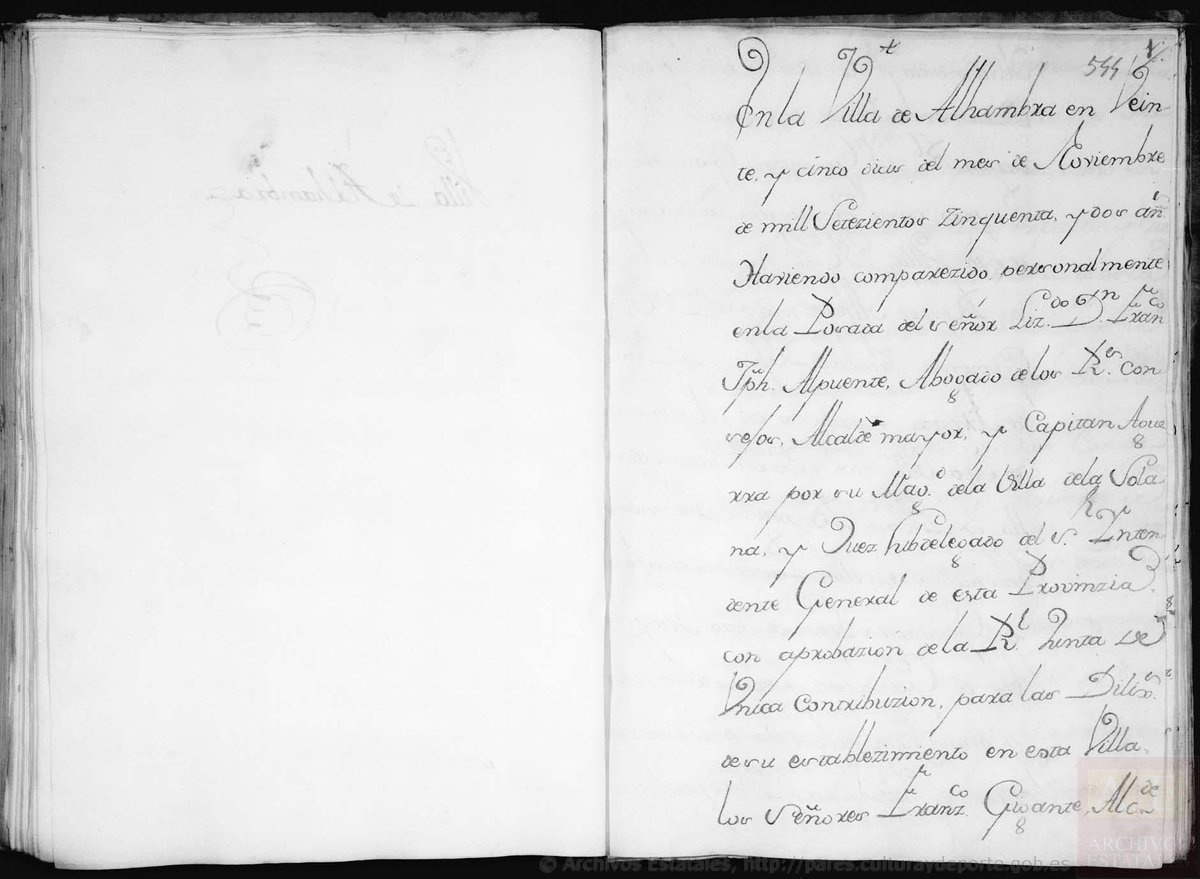 544
En la Villa de Alhambra en Vein
te, y cinco dias del mes de Noviembre
de mill Setezientos Zinquenta, y dos añ
Haviendo comparezido personalmente
en la Posada del señor Liz.do D.n Fran.co
Jph. Alpuente, Abogado de los R.s con
sejos, Alcalde mayor, y Capitan Ague
rra por su Mag.d de la Villa de la Sola
na, y Juez subdelegado del S.r Ynten
dente General de esta Provinzia,
con aprobazion de la R.l Junta de
Vnica Contribuzion, para las Dilix.s
de su establezimiento en esta Villa,
los Señores Franz.co Gigante, Alc.de
Villa de Alhambra
ARCHIVOS
ESTATALES
© Archivos Estatales, http://pares.culturaydeporte.gob.es